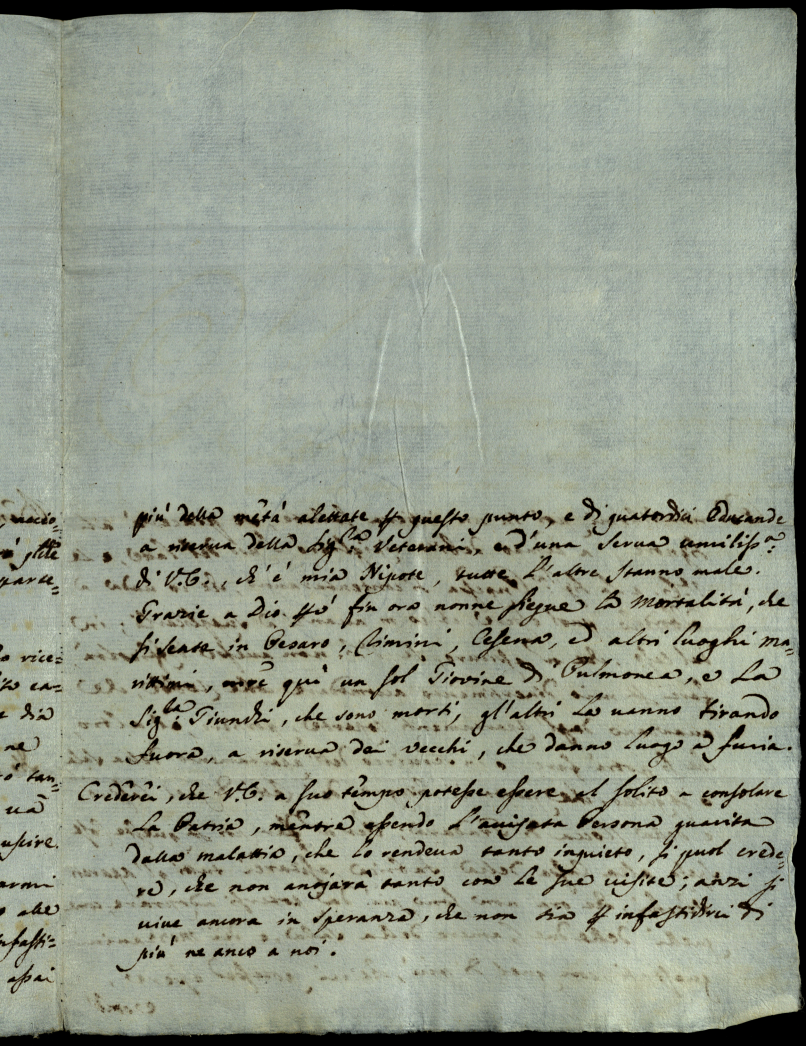 più della metà alettate p questo punto, e di quatordici Educande
a riserva della Sig.ra Veterani, e d'una serva umiliss.a
di V.E., ch'è mia Nipote, tutte l'altre stanno male.
Grazie a Dio pò fin ora non ne siegue la mortalità, che
si sente in Pesaro, Rimini, Cesena, ed altri luoghi ma-
rittimi, qui un sol Giovine di Pulmonea, e La
Sig.ra Giunchi, che sono morti, gl'altri la vanno tirando
fuora, a riserva dei vecchi, che danno luogo a furia.
Crederei, che V.E. a suo tempo potesse essere al solito a consolare
La Patria, mentre essendo l'avisata Persona guarita
dalla malattia, che lo rendeva tanto inquieto, si puol crede-
re, che non anojarà tanto con le sue visite; anzi si
vive ancora in speranza, che non sia p infastidirci di
più ne anco a noi.